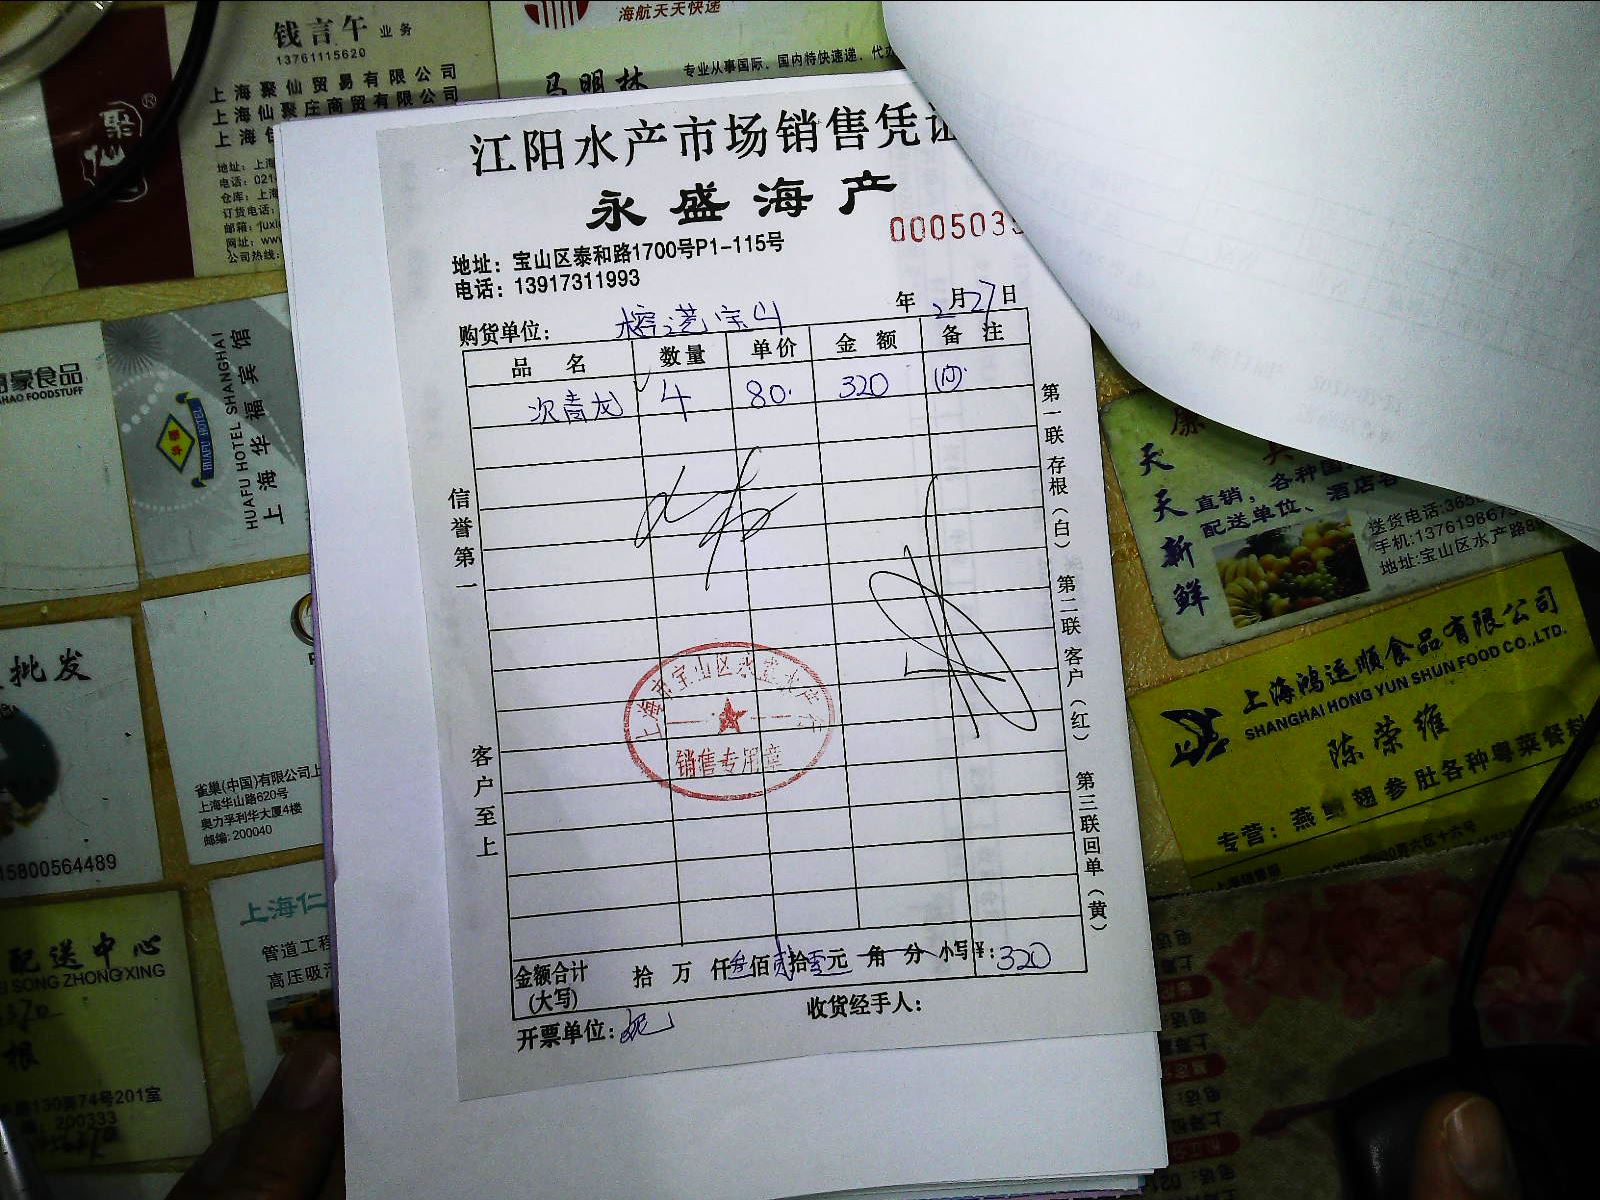 钱言午 业务
13761115620
上海聚仙贸易有限公司
上海仙聚庄商贸有限公司
上海
聚仙
®
地址：上海
电话：021
仓库：上海
订货电话：
邮箱：juxi
网址：ww
公司热线：
海航天天快递
马明林
专业从事国际、国内特快速递、代办
江阳水产市场销售凭证
永盛海产
000503
地址：宝山区泰和路1700号P1-115号
电话：13917311993
购货单位： 榕港宝山
年 2月27日
品名 数量 单价 金额 备注
次青龙 4 80. 320
信誉第一
客户至上
第一联存根（白） 第二联客户（红） 第三联回单（黄）
销售专用章
金额合计（大写） 拾 万 仟叁佰贰拾零元 角 分 小写¥：320
开票单位：
收货经手人：
豪食品
HAO FOODSTUFF
HUAFU HOTEL
HUAFU HOTEL SHANGHAI
上海华福宾馆
批发
15800564489
雀巢(中国)有限公司上
上海华山路620号
奥力孚利华大厦4楼
邮编：200040
配送中心
EI SONG ZHONG XING
根
130弄74号201室
200333
上海仁
管道工程
高压吸
天天新鲜
直销，各种国
配送单位、酒店
送货电话:365
手机:137619867
地址:宝山区水产路8
上海鸿运顺食品有限公司
SHANGHAI HONG YUN SHUN FOOD CO.,LTD.
陈荣维
专营：燕鲍翅参肚各种粤菜餐料